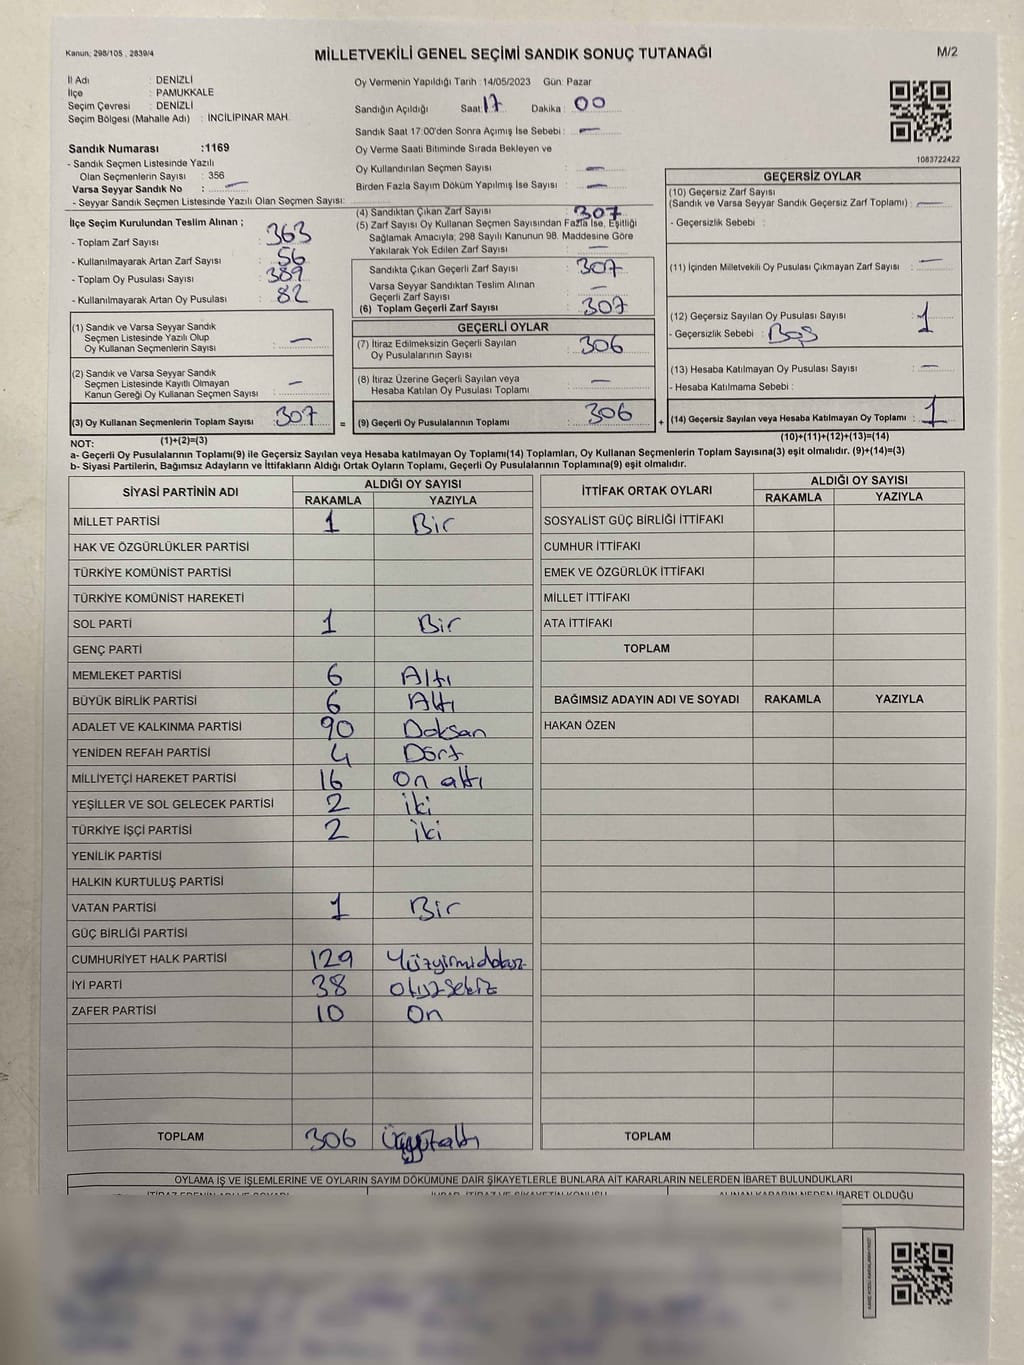 Kanun: 298/105 , 2839/4
MİLLETVEKİLİ GENEL SEÇİMİ SANDIK SONUÇ TUTANAĞI
M/2
İl Adı : DENİZLİ
İlçe : PAMUKKALE
Seçim Çevresi : DENİZLİ
Seçim Bölgesi (Mahalle Adı) : İNCİLİPINAR MAH.
Sandık Numarası :1169
- Sandık Seçmen Listesinde Yazılı
Olan Seçmenlerin Sayısı : 356
Varsa Seyyar Sandık No : —
- Seyyar Sandık Seçmen Listesinde Yazılı Olan Seçmen Sayısı:
Oy Vermenin Yapıldığı Tarih : 14/05/2023 Gün: Pazar
Sandığın Açıldığı Saat: 17 Dakika : 00
Sandık Saat 17:00'den Sonra Açımış İse Sebebi : —
Oy Verme Saati Bitiminde Sırada Bekleyen ve
Oy Kullandırılan Seçmen Sayısı : —
Birden Fazla Sayım Döküm Yapılmış İse Sayısı : —
1083722422
İlçe Seçim Kurulundan Teslim Alınan ;
- Toplam Zarf Sayısı : 363
- Kullanılmayarak Artan Zarf Sayısı : 56
- Toplam Oy Pusulası Sayısı : 389
- Kullanılmayarak Artan Oy Pusulası : 82
(1) Sandık ve Varsa Seyyar Sandık
Seçmen Listesinde Yazılı Olup
Oy Kullanan Seçmenlerin Sayısı : —
(2) Sandık ve Varsa Seyyar Sandık
Seçmen Listesinde Kayıtlı Olmayan
Kanun Gereği Oy Kullanan Seçmen Sayısı : —
(3) Oy Kullanan Seçmenlerin Toplam Sayısı : 307
(1)+(2)=(3)
(4) Sandıktan Çıkan Zarf Sayısı : 307
(5) Zarf Sayısı Oy Kullanan Seçmen Sayısından Fazla İse, Eşitliği
Sağlamak Amacıyla, 298 Sayılı Kanunun 98. Maddesine Göre
Yakılarak Yok Edilen Zarf Sayısı : —
Sandıkta Çıkan Geçerli Zarf Sayısı : 307
Varsa Seyyar Sandıktan Teslim Alınan
Geçerli Zarf Sayısı : —
(6) Toplam Geçerli Zarf Sayısı : 307
GEÇERLİ OYLAR
(7) İtiraz Edilmeksizin Geçerli Sayılan
Oy Pusulalarının Sayısı : 306
(8) İtiraz Üzerine Geçerli Sayılan veya
Hesaba Katılan Oy Pusulası Toplamı : —
= (9) Geçerli Oy Pusulalarının Toplamı : 306
GEÇERSİZ OYLAR
(10) Geçersiz Zarf Sayısı
(Sandık ve Varsa Seyyar Sandık Geçersiz Zarf Toplamı) : —
- Geçersizlik Sebebi :
(11) İçinden Milletvekili Oy Pusulası Çıkmayan Zarf Sayısı : —
(12) Geçersiz Sayılan Oy Pusulası Sayısı : 1
- Geçersizlik Sebebi : Boş
(13) Hesaba Katılmayan Oy Pusulası Sayısı : —
- Hesaba Katılmama Sebebi :
+ (14) Geçersiz Sayılan veya Hesaba Katılmayan Oy Toplamı : 1
(10)+(11)+(12)+(13)=(14)
NOT:
a- Geçerli Oy Pusulalarının Toplamı(9) ile Geçersiz Sayılan veya Hesaba katılmayan Oy Toplamı(14) Toplamları, Oy Kullanan Seçmenlerin Toplam Sayısına(3) eşit olmalıdır. (9)+(14)=(3)
b- Siyasi Partilerin, Bağımsız Adayların ve İttifakların Aldığı Ortak Oyların Toplamı, Geçerli Oy Pusulalarının Toplamına(9) eşit olmalıdır.
SİYASİ PARTİNİN ADI ALDIĞI OY SAYISI
RAKAMLA YAZIYLA
MİLLET PARTİSİ 1 Bir
HAK VE ÖZGÜRLÜKLER PARTİSİ
TÜRKİYE KOMÜNİST PARTİSİ
TÜRKİYE KOMÜNİST HAREKETİ
SOL PARTİ 1 Bir
GENÇ PARTİ
MEMLEKET PARTİSİ 6 Altı
BÜYÜK BİRLİK PARTİSİ 6 Altı
ADALET VE KALKINMA PARTİSİ 90 Doksan
YENİDEN REFAH PARTİSİ 4 Dört
MİLLİYETÇİ HAREKET PARTİSİ 16 On altı
YEŞİLLER VE SOL GELECEK PARTİSİ 2 iki
TÜRKİYE İŞÇİ PARTİSİ 2 iki
YENİLİK PARTİSİ
HALKIN KURTULUŞ PARTİSİ
VATAN PARTİSİ 1 Bir
GÜÇ BİRLİĞİ PARTİSİ
CUMHURİYET HALK PARTİSİ 129 Yüzyirmidokuz
İYİ PARTİ 38 otuzsekiz
ZAFER PARTİSİ 10 On
TOPLAM 306 Üçyüzaltı
İTTİFAK ORTAK OYLARI ALDIĞI OY SAYISI
RAKAMLA YAZIYLA
SOSYALİST GÜÇ BİRLİĞİ İTTİFAKI
CUMHUR İTTİFAKI
EMEK VE ÖZGÜRLÜK İTTİFAKI
MİLLET İTTİFAKI
ATA İTTİFAKI
TOPLAM
BAĞIMSIZ ADAYIN ADI VE SOYADI RAKAMLA YAZIYLA
HAKAN ÖZEN
TOPLAM
OYLAMA İŞ VE İŞLEMLERİNE VE OYLARIN SAYIM DÖKÜMÜNE DAİR ŞİKAYETLERLE BUNLARA AİT KARARLARIN NELERDEN İBARET BULUNDUKLARI
ALINAN KARARIN NEDEN İBARET OLDUĞU